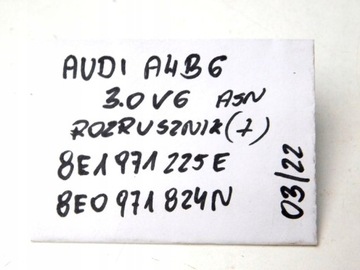 AUDI A4B6
3.0 V6 ASN
ROZRUSZNIK(7)
8E1 971 225E
8E0 971 824N
03/22